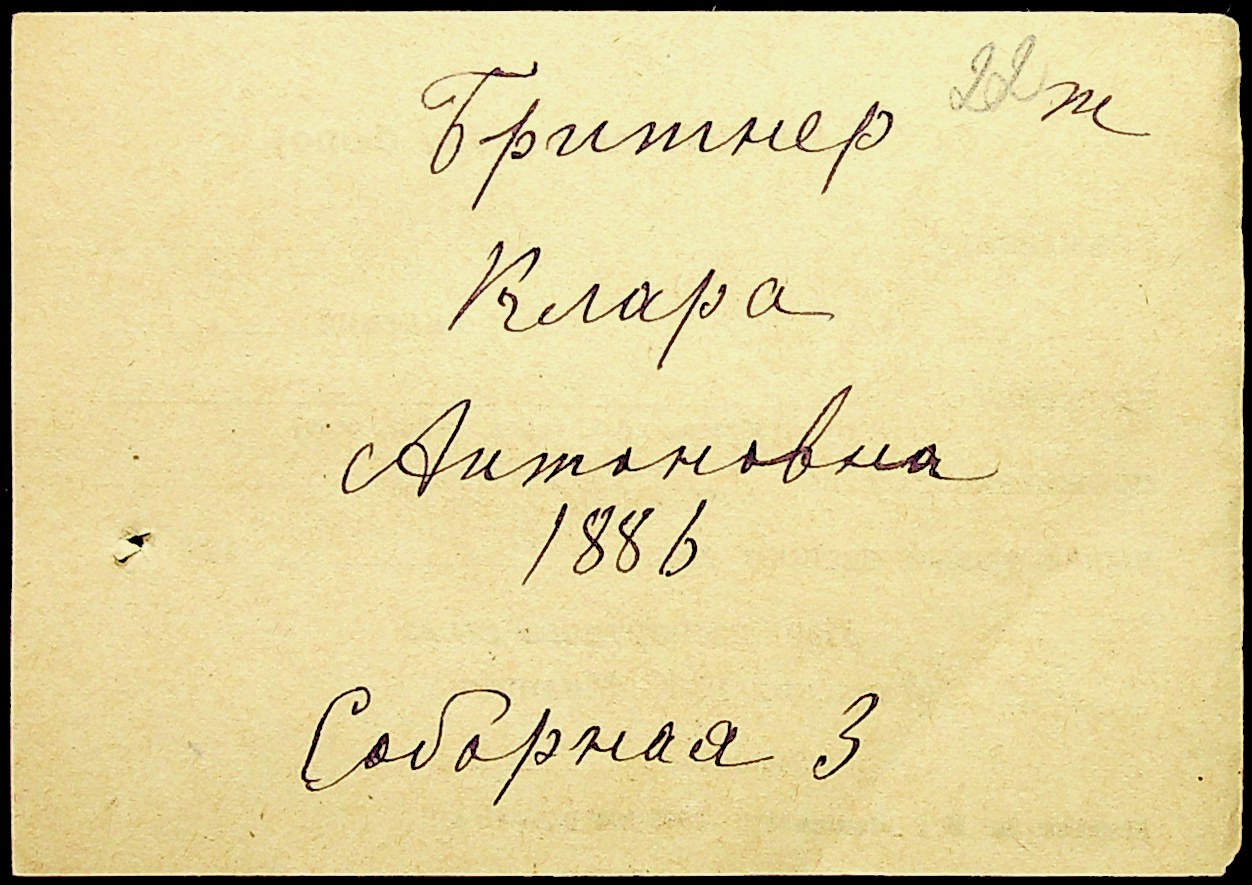 Бритнер 22 ж
Клара
Антоновна
1886
Соборная 3